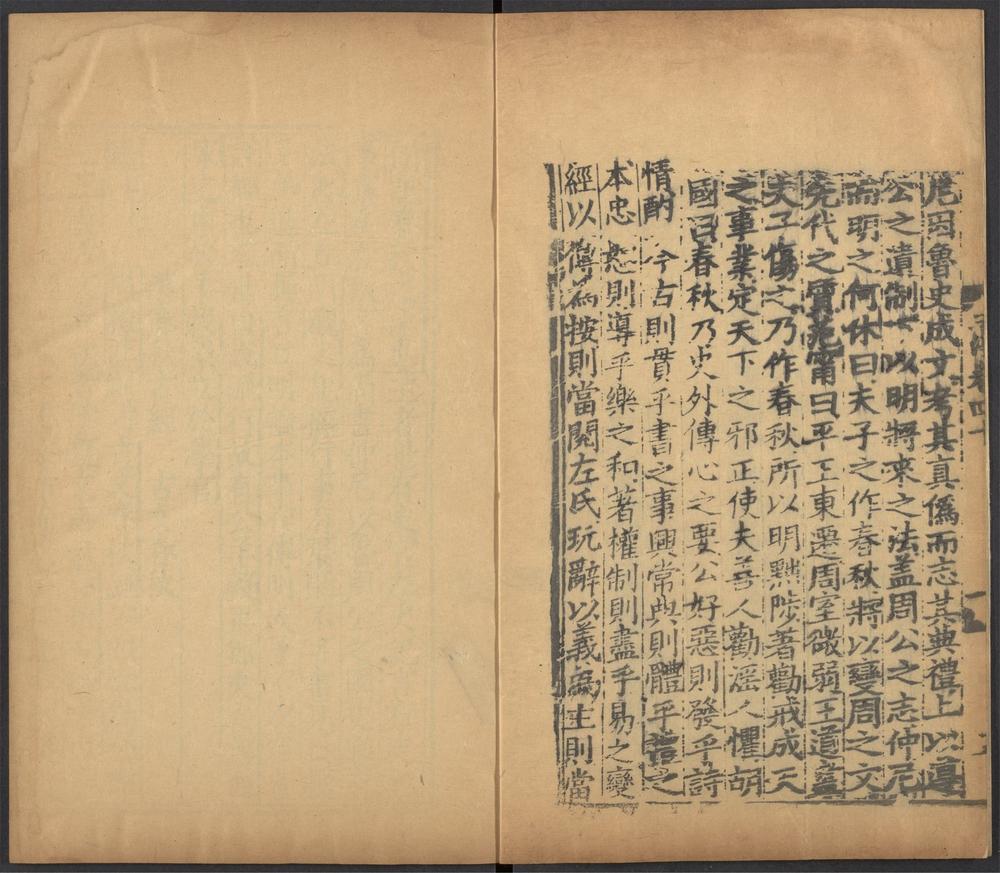 尼因魯史成文考其真僞而志其典禮上以遵
公之遺制下以明將來之法盖周公之志仲尼
而明之何休曰夫子之作春秋將以變周之文
先代之質范甯曰平王東遷周室微弱王道盡
夫子傷之乃作春秋所以明黜陟著勸戒成天
之事業定天下之邪正使夫善人勸滛人懼胡
國曰春秋乃史外傳心之要公好惡則發乎詩
情酌今古則貫乎書之事興常典則體乎禮之
本忠恕則導乎樂之和著權制則盡乎易之變
經以傳為按則當閱左氏玩辭以義為主則當